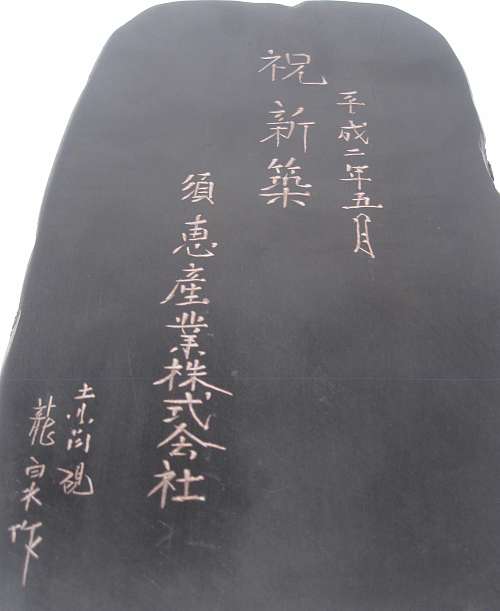 平成二年五月
祝新築
須恵産業株式会社
硯
龍 作